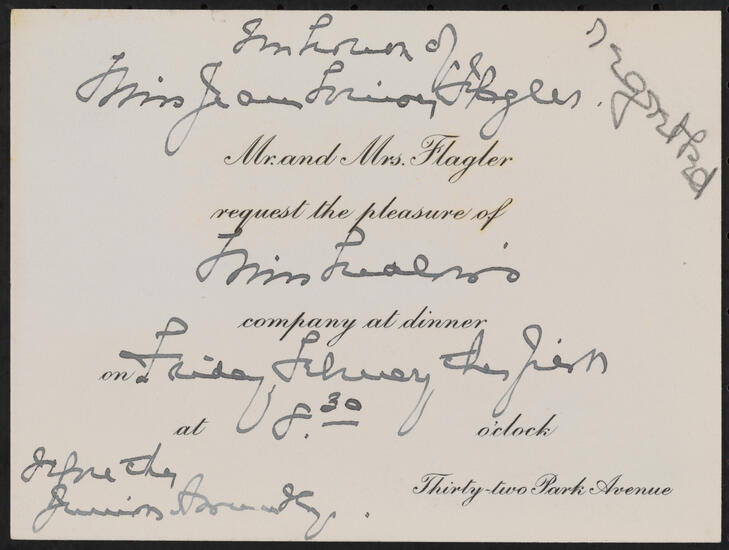 In honor of
Miss Jean Louise Flagler.
regretted
Mr. and Mrs. Flagler
request the pleasure of
Miss
company at dinner
on Friday, February the first
at 8.30 o'clock
Before the
Junior Assembly.
Thirty-two Park Avenue